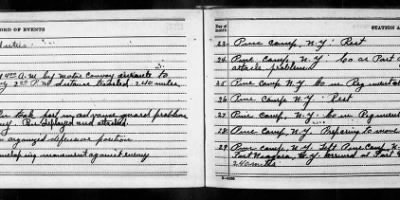 RECORD OF EVENTS
4:00 A.M. by motor convoy enroute to
2:00 P.M. distance traveled 240 miles.
Co. took part in advance guard problem
Co. deployed and attacked.
organized defensive position
enveloping movement against enemy
Day of month
STATION A
23 Pine Camp, N.Y. Rest
24 Pine Camp, N.Y. Co as Part of
attack problem
25 Pine Camp N.Y. Co in Regimental
26 Pine Camp N.Y. Rest
27 Pine Camp, N.Y. Co in Regiment
28 Pine Camp, N.Y. Preparing to move
29 Pine Camp, N.Y. Left Pine Camp N.Y.
Fort Niagara, N.Y. arrived at Fort
240 miles